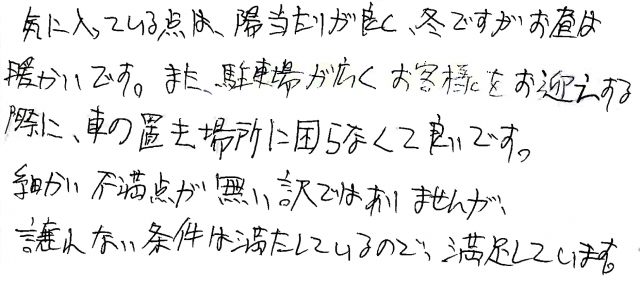 気に入っている点は、陽当たりが良く、冬ですがお昼は
暖かいです。また、駐車場が広くお客様をお迎えする
際に、車の置き場所に困らなくて良いです。
細かい不満点が無い訳ではありませんが、
譲れない条件は満たしているので、満足しています。